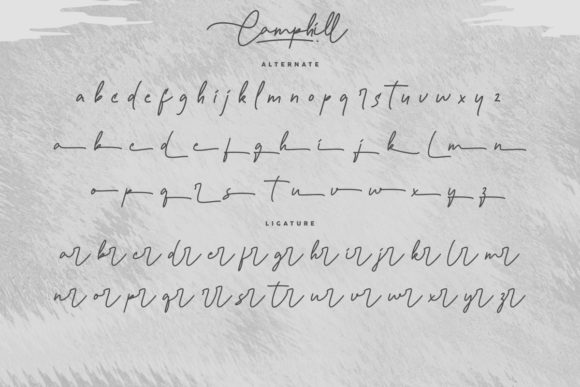 Camphill
ALTERNATE
a b c d e f g h i j k l m n o p q r s t u v w x y z
a b c d e f g h i j k l m n
o p q r s t u v w x y z
LIGATURE
ar br cr dr er fr gr hr ir jr kr lr mr
nr or pr qr rr sr tr ur vr wr xr yr zr